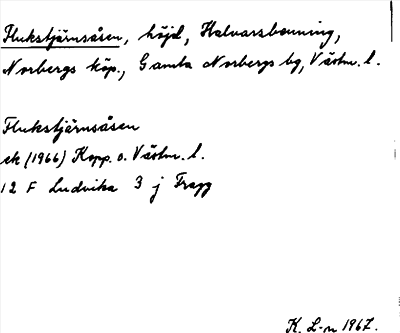 Flukstjärnsåsen, höjd, Halvarsbenning,
Norbergs köp., Gamla Norbergs bg, Västm. l.
Flukstjärnsåsen
ek (1966) Kopp. o. Västm. l.
12 F Ludvika 3 j Fragg
K. L-n 1967.